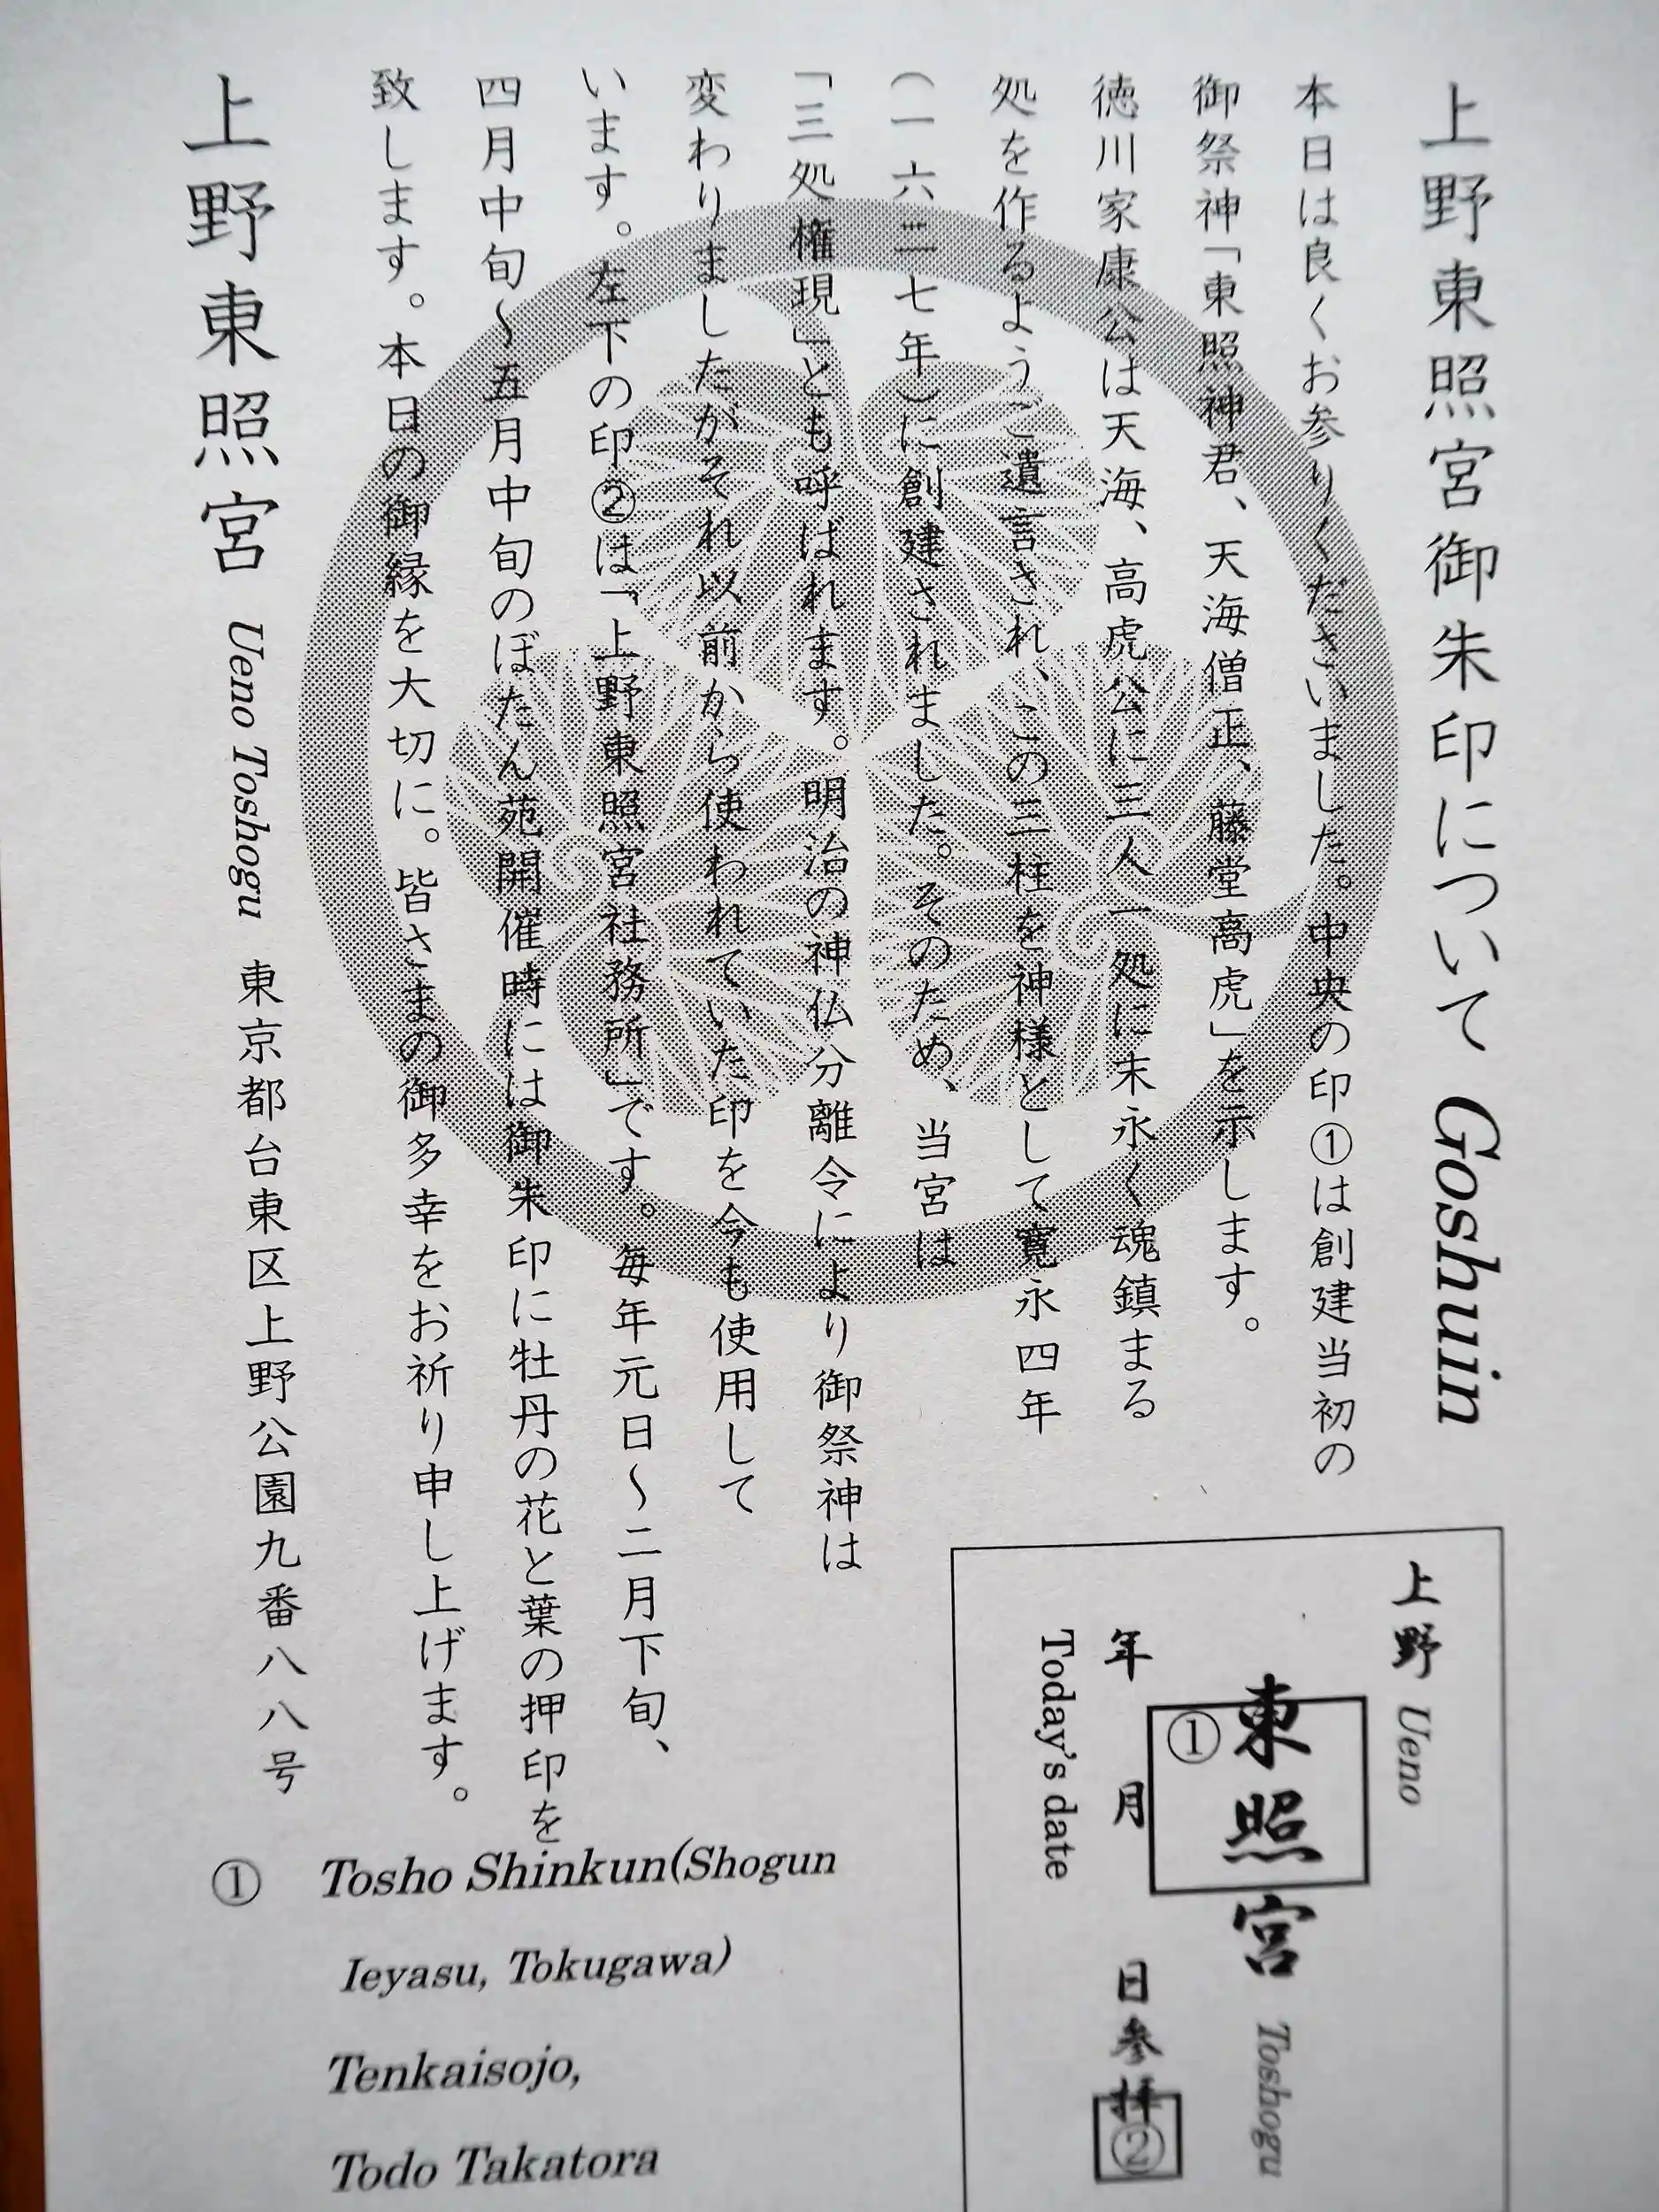 上野東照宮御朱印について Goshuin
本日は良くお参りくださいました。中央の印①は創建当初の
御祭神「東照神君、天海僧正、藤堂高虎」を示します。
徳川家康公は天海、高虎公に三人一処に末永く魂鎮まる
処を作るようご遺言され、この三柱を神様として寛永四年
(一六二七年)に創建されました。そのため、当宮は
「三処権現」とも呼ばれます。明治の神仏分離令により御祭神は
変わりましたがそれ以前から使われていた印を今も使用して
います。左下の印②は「上野東照宮社務所」です。毎年元日～二月下旬、
四月中旬～五月中旬のぼたん苑開催時には御朱印に牡丹の花と葉の押印を
致します。本日の御縁を大切に。皆さまの御多幸をお祈り申し上げます。
上野東照宮 Ueno Toshogu 東京都台東区上野公園九番八八号
上野 Ueno
東照宮 Toshogu
①
年 月 日参拝
②
Today's date
① Tosho Shinkun(Shogun
Ieyasu, Tokugawa)
Tenkaisojo,
Todo Takatora